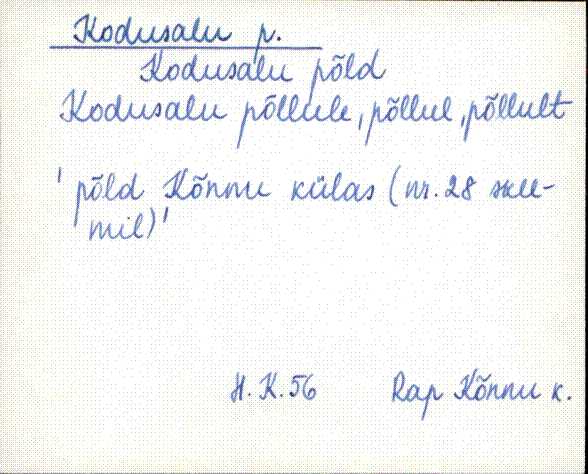 Kodusalu p.
Kodusalu põld
Kodusalu põllule, põllul, põllult
' põld Kõnnu külas (nr. 28 skee-
mil)'
H. K. 56 Rap Kõnnu k.